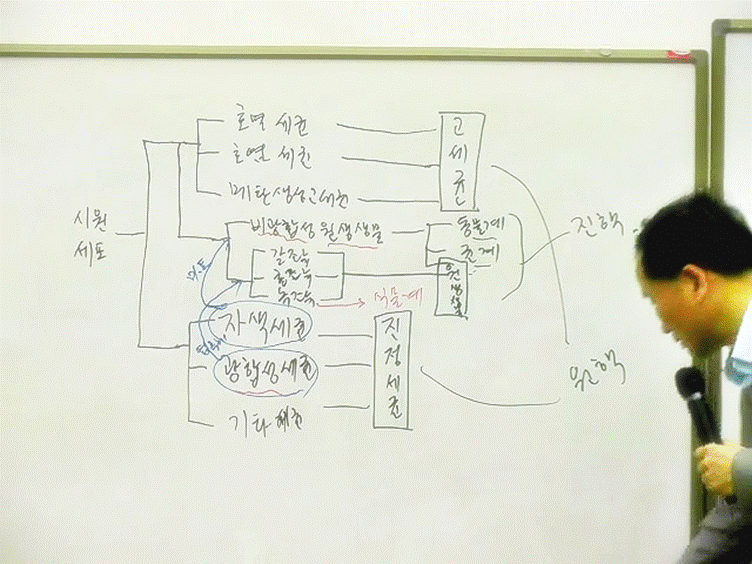 호열 세균
호염 세균
메탄생성고세균
고세균
시원
세포
비광합성원생생물
동물계
균계
진핵
갈조류
홍조류
녹조류
원생생물
식물계
미토
자색세균
광합성세균
기타 세균
진정세균
원핵